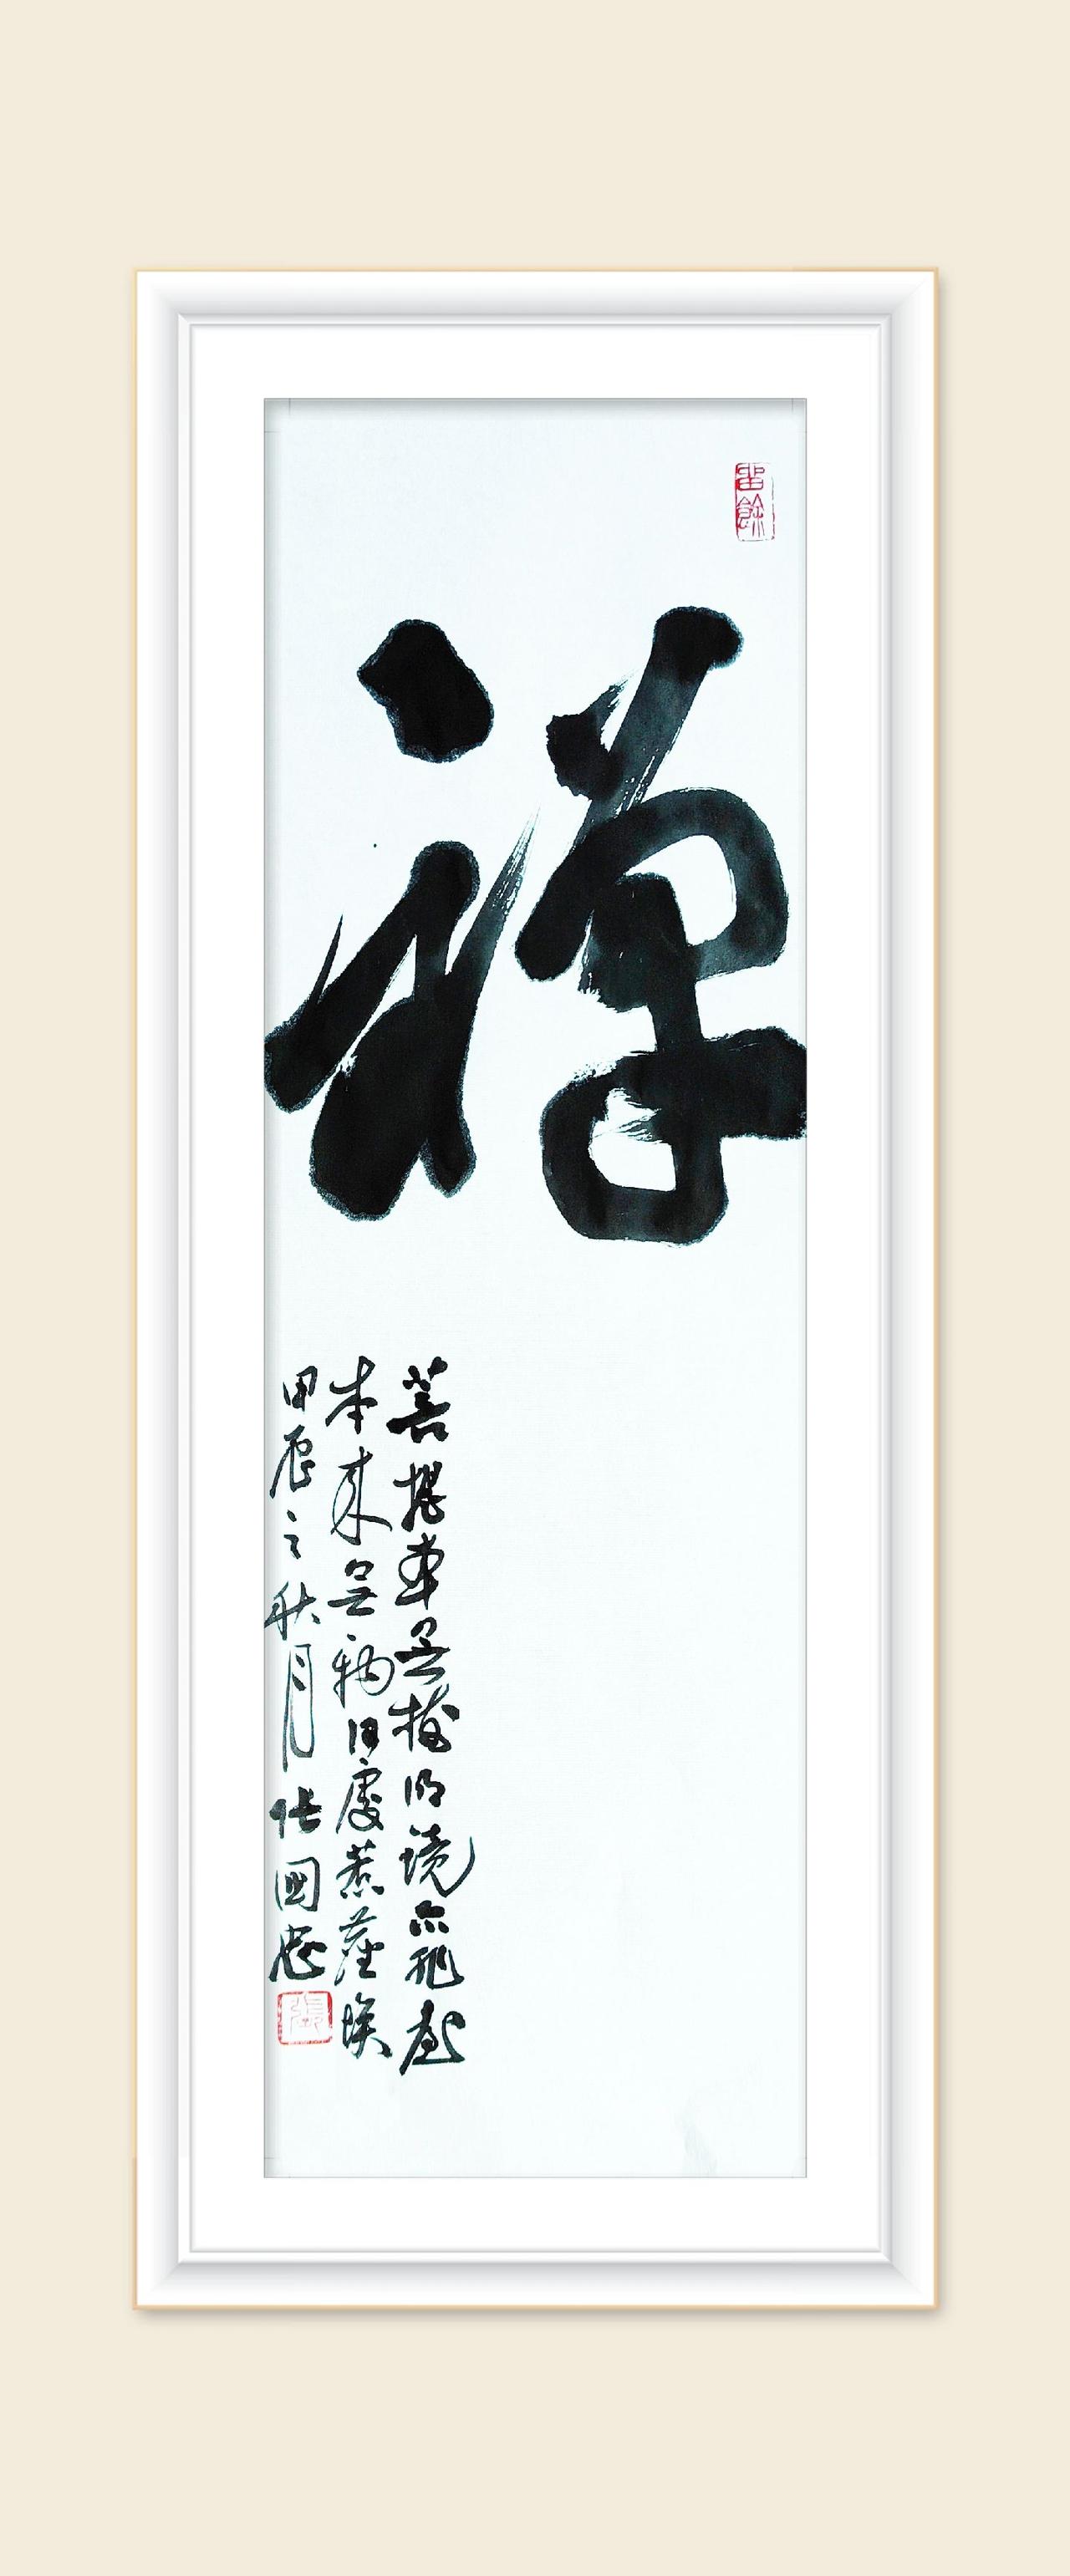 留餘
禪
菩提本無樹明鏡亦非臺
本來無一物何處惹塵埃
甲辰之秋月張國忠
張